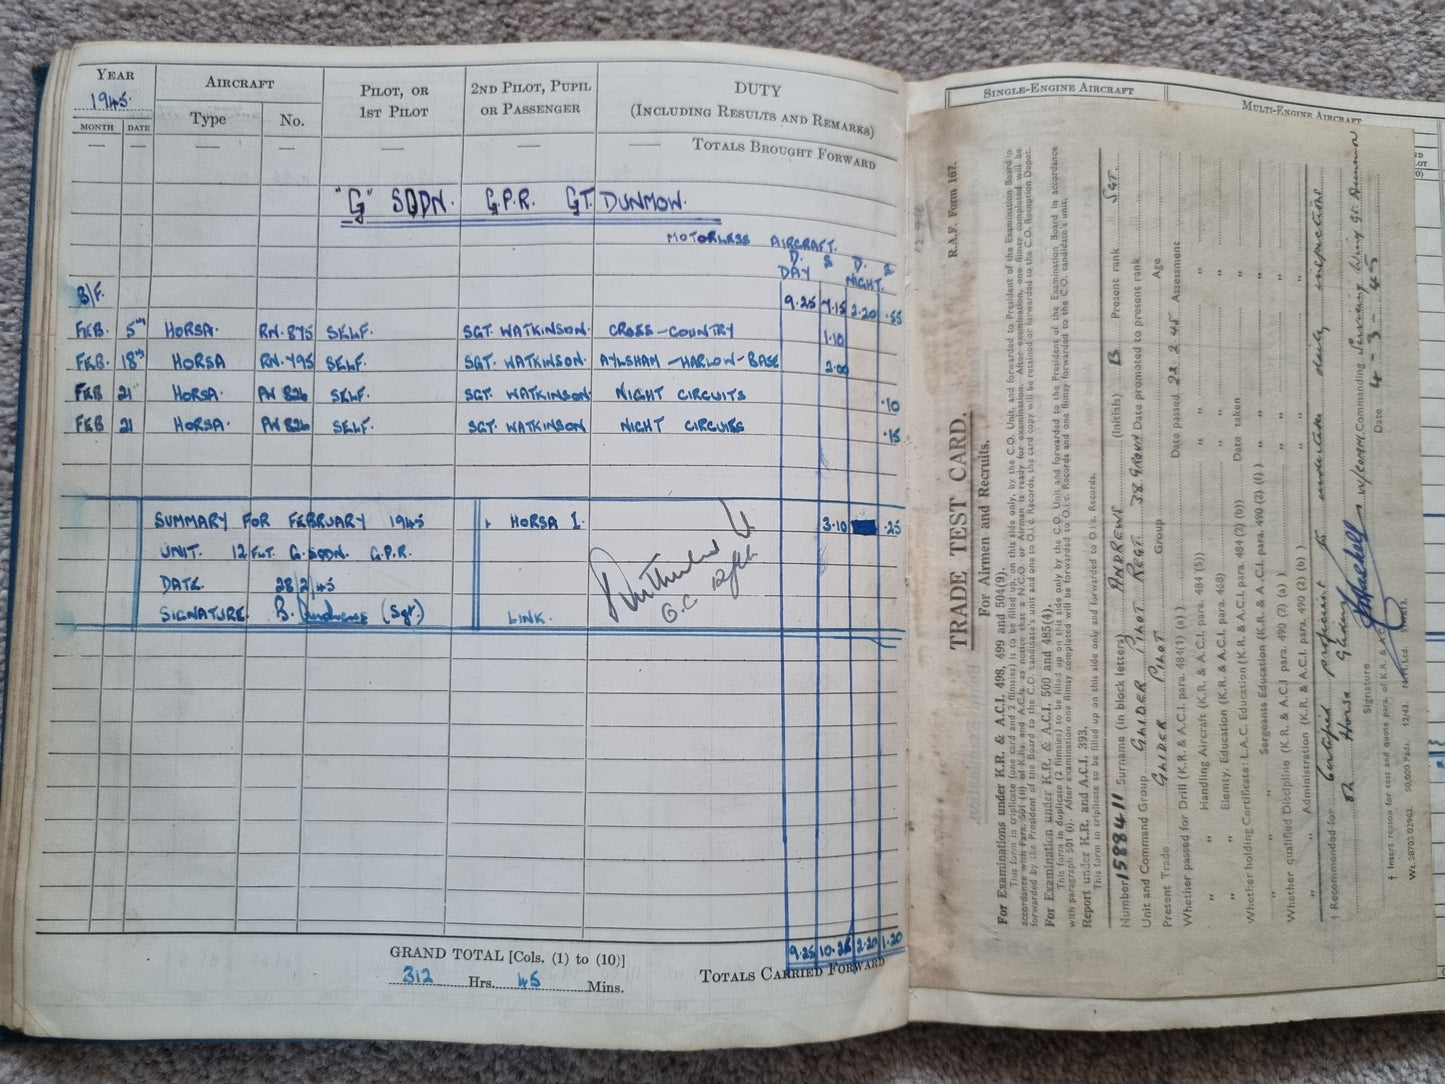 YEAR AIRCRAFT PILOT, OR 2ND PILOT, PUPIL DUTY
1945. Type No. 1ST PILOT OR PASSENGER (INCLUDING RESULTS AND REMARKS)
MONTH DATE
— — — — — — — TOTALS BROUGHT FORWARD
"G" SQDN. G.P.R. GT. DUNMOW.
MOTORLESS AIRCRAFT.
D. S D. S.
DAY NIGHT.
B/F. 9.25 7.15 2.20 .55
FEB. 5th HORSA. RN.875 SELF. SGT. WATKINSON. CROSS-COUNTRY 1.10
FEB. 18th HORSA RN.795 SELF. SGT. WATKINSON. AYLSHAM-HARLOW-BASE 2.00
FEB 21 HORSA. PW 826 SELF. SGT. WATKINSON NIGHT CIRCUITS .10
FEB 21 HORSA. PW 826 SELF. SGT. WATKINSON NIGHT CIRCUITS .15
SUMMARY FOR FEBRUARY 1945 1. HORSA I. 3.10 .25
UNIT. 12 FLT. G. SQDN. G.P.R.
DATE 28/2/45
SIGNATURE. B. Andrews (Sgt.) LINK.
O.C. 12 flt
GRAND TOTAL [Cols. (1) to (10)]
312 Hrs. 45 Mins.
9.25 10.25 2.20 1.20
TOTALS CARRIED FORWARD
SINGLE-ENGINE AIRCRAFT MULTI-ENGINE AIRCRAFT
R.A.F. Form 167.
TRADE TEST CARD.
For Airmen and Recruits.
For Examinations under K.R. & A.C.I. 498, 499 and 504(9).
This form in triplicate (one card and 2 flimsies) is to be filled up, on this side only, by the C.O. Unit, and forwarded to President of the Examination Board in
accordance with Para. 501 (ii) of K.Rs. and A.C.Is. as notice that a N.C.O. or Airman is ready for examination. After examination, one flimsy completed will be
forwarded by the President of the Board to the C.O. candidate's unit and one to O. i/c. Records, the card copy will be retained or forwarded to the C.O. Reception Depot.
For Examination under K.R. & A.C.I. 500 and 485(4).
This form in duplicate (2 flimsies) to be filled up on this side only by the C.O. Unit and forwarded to the President of the Examination Board in accordance
with paragraph 501 (i). After examination one flimsy completed will be forwarded to O. i/c. Records and one flimsy forwarded to the C.O. candidate's unit.
Report under K.R. and A.C.I. 393.
This form in triplicate to be filled up on this side only and forwarded to O. i/c. Records.
Number 1588411 Surname (in block letters) ANDREWS (Initials) B Present rank Sgt.
Unit and Command Group GLIDER PILOT REGT. 38 GROUP Date promoted to present rank
Present Trade GLIDER PILOT Group Age
Whether passed for Drill (K.R. & A.C.I. para. 484(1) (a)) Date passed 22.2.45 Assessment
" " Handling Aircraft (K.R. & A.C.I. para. 484 (5)) " "
" " Elemty. Education (K.R. & A.C.I. para. 468) " "
Whether holding Certificate: L.A.C. Education (K.R. & A.C.I. para. 484 (2) (b)) Date taken "
" " Sergeants Education (K.R. & A.C.I. para. 490 (2) (f)) " "
Whether qualified Discipline (K.R. & A.C.I para. 490 (2) (a)) " "
" " Administration (K.R. & A.C.I. para. 490 (2) (b)) " "
† Recommended for Certified proficient to undertake daily inspection
on Horsa Glider
Signature W/Comm. Commanding Servicing Wing Gt. Dunmow
Date 4-3-45
† Insert reason for test and quote para. of K.R. & A.C.I.
Wt. 38703 02962. 50,000 Pads. 12/43.